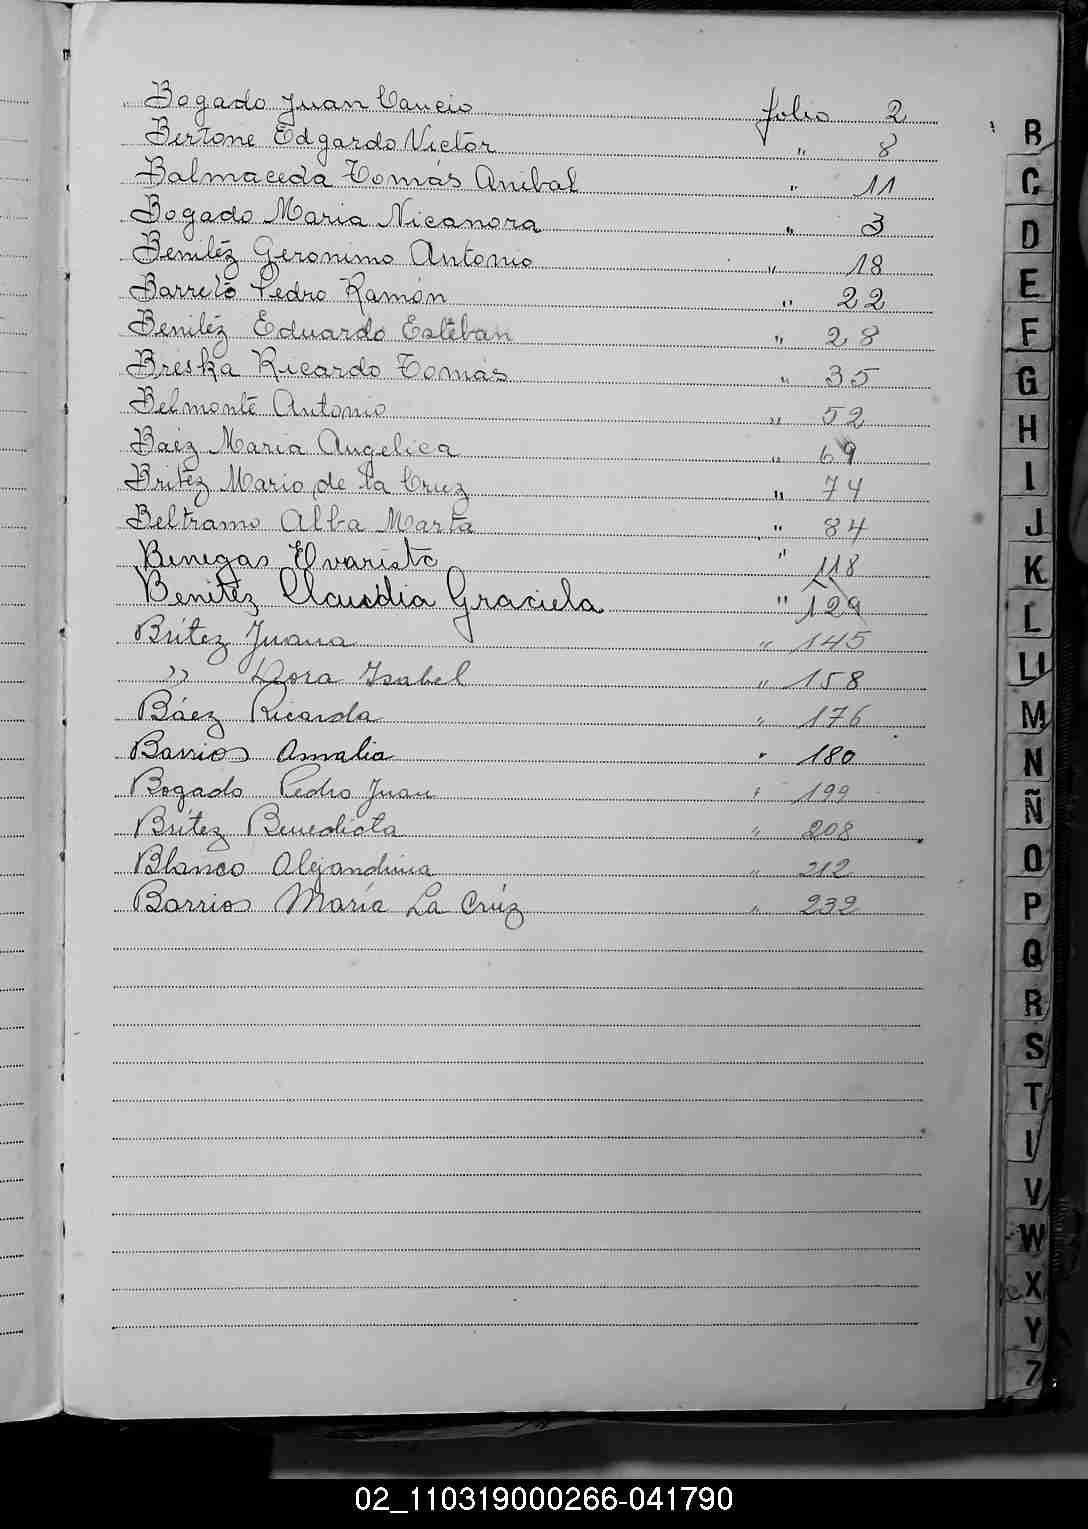 Bogado Juan Cancio folio 2
Bertone Edgardo Victor " 8
Balmaceda Tomás Anibal " 11
Bogado Maria Nicanora " 3
Benitéz Geronimo Antonio " 18
Barreto Pedro Ramón " 22
Benitéz Eduardo Estéban " 28
Breska Ricardo Tomás " 35
Belmonte Antonio " 52
Baéz Maria Angelica " 69
Britez Mario de la Cruz " 74
Beltramo Alba Marta " 84
Benegas Evaristo " 118
Benitez Claudia Graciela " 129
Britez Juana " 145
" Dora Isabel " 158
Báez Ricarda " 176
Barrios Amalia " 180
Bogado Pedro Juan " 199
Britez Benedicta " 208
Blanco Alejandrina " 212
Barrios María La Crúz " 232
B
C
D
E
F
G
H
I
J
K
L
LI
M
N
Ñ
O
P
Q
R
S
T
U
V
W
X
Y
Z
02_110319000266-041790